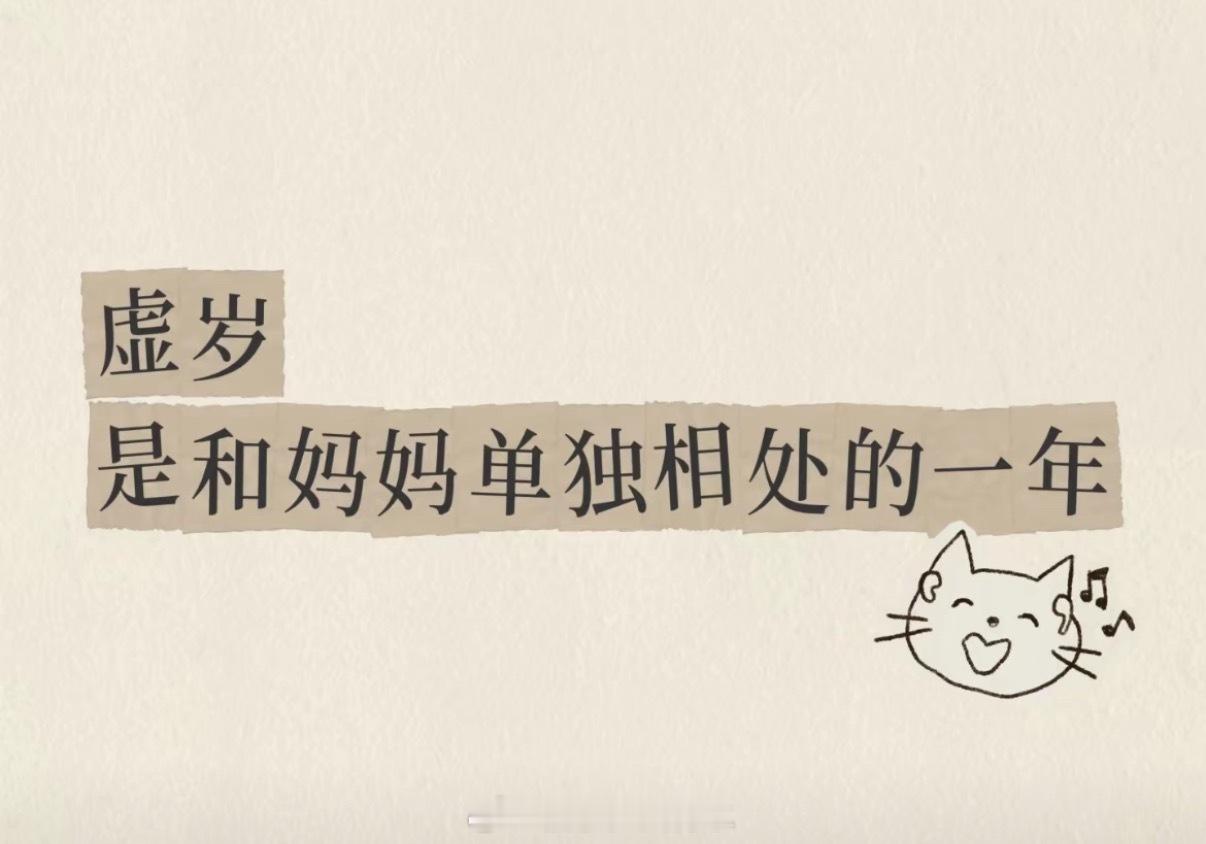 虚岁
是和妈妈单独相处的一年